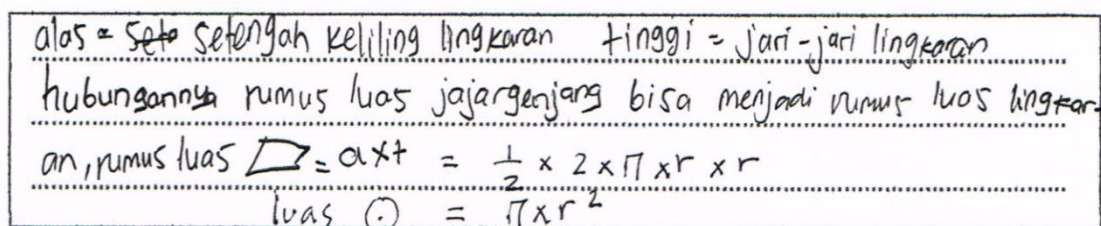 alas = setengah keliling lingkaran tinggi = jari-jari lingkaran
hubungannya rumus luas jajargenjang bisa menjadi rumus luas lingkar-
an, rumus luas ▱ = a x t = 1/2 x 2 x π x r x r
luas ⊙ = π x r²